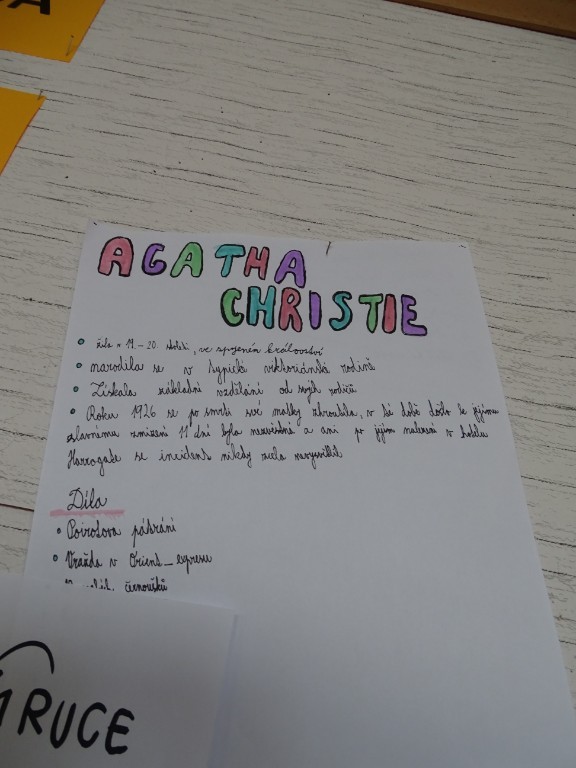 A
AGATHA
CHRISTIE
• žila v 19. – 20. století, ve spojeném království
• narodila se v typické viktoriánské rodině
• Získala základní vzdělání od svých rodičů
• Roku 1926 se po smrti své matky zhroutila, v té době došlo k jejímu
slavnému zmizení 11 dní byla nezvěstná a ani po jejím nalezení v hotelu
Harrogate se incident nikdy zcela nevysvětlil
Díla
• Poirotova pátrání
• Vražda v Orient_expresu
černoušků
RUCE